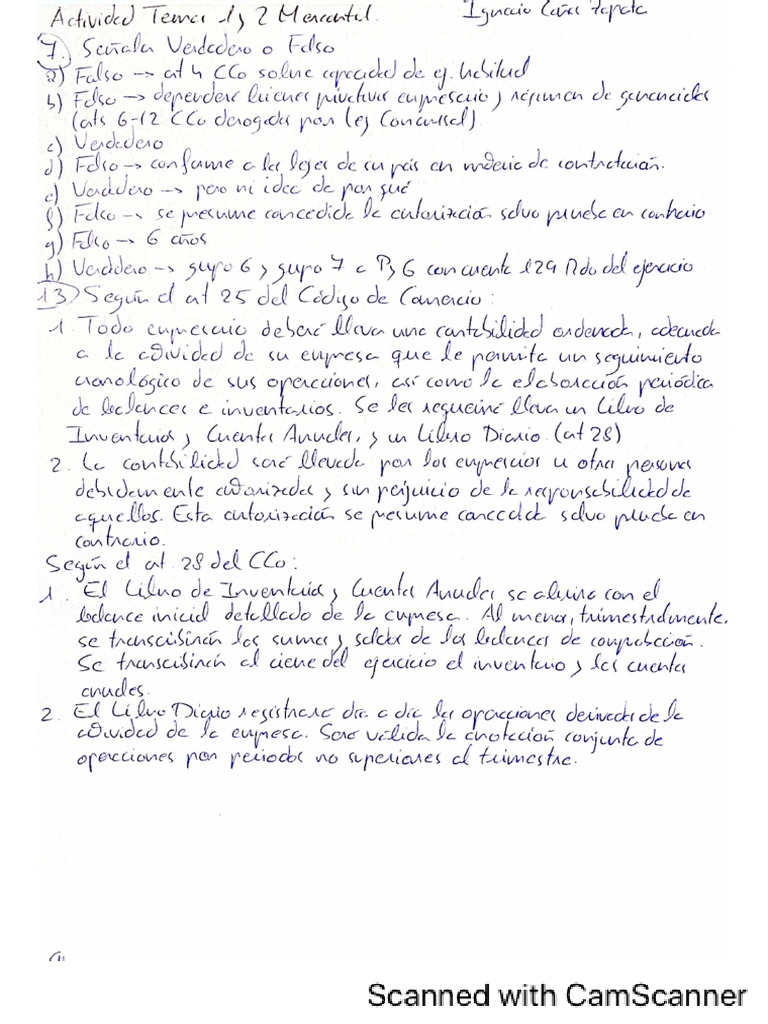 Actividad Temas 1 y 2 Mercantil. Ignacio Cañas Zapata
7. Señala Verdadero o Falso
a) Falso → art 4 CCo sobre capacidad de ej. habitual
b) Falso → dependerá bienes privativos empresario y régimen de gananciales
(arts 6-12 CCo derogados por Ley Concursal)
c) Verdadero
d) Falso → conforme a las leyes de su país en materia de contratación.
e) Verdadero → pero ni idea de por qué
f) Falso → se presume concedida la autorización salvo prueba en contrario
g) Falso → 6 años
h) Verdadero → grupo 6 y grupo 7 a PyG con cuenta 129 Rdo del ejercicio
13) Según el art 25 del Código de Comercio:
1. Todo empresario deberá llevar una contabilidad ordenada, adecuada
a la actividad de su empresa que le permita un seguimiento
cronológico de sus operaciones, así como la elaboración periódica
de balances e inventarios. Se les requerirá llevar un Libro de
Inventarios y Cuentas Anuales, y un Libro Diario (art 28)
2. La contabilidad será llevada por los empresarios u otras personas
debidamente autorizadas y sin perjuicio de la responsabilidad de
aquellos. Esta autorización se presume concedida salvo prueba en
contrario.
Según el art 28 del CCo:
1. El Libro de Inventarios y Cuentas Anuales se abrirá con el
balance inicial detallado de la empresa. Al menos, trimestralmente,
se transcibirán las sumas y saldos de los balances de comprobación.
Se transcibirán al cierre del ejercicio el inventario y las cuentas
anuales.
2. El Libro Diario registrará día a día las operaciones derivadas de la
actividad de la empresa. Será válida la anotación conjunta de
operaciones por periodos no superiores al trimestre.
Scanned with CamScanner